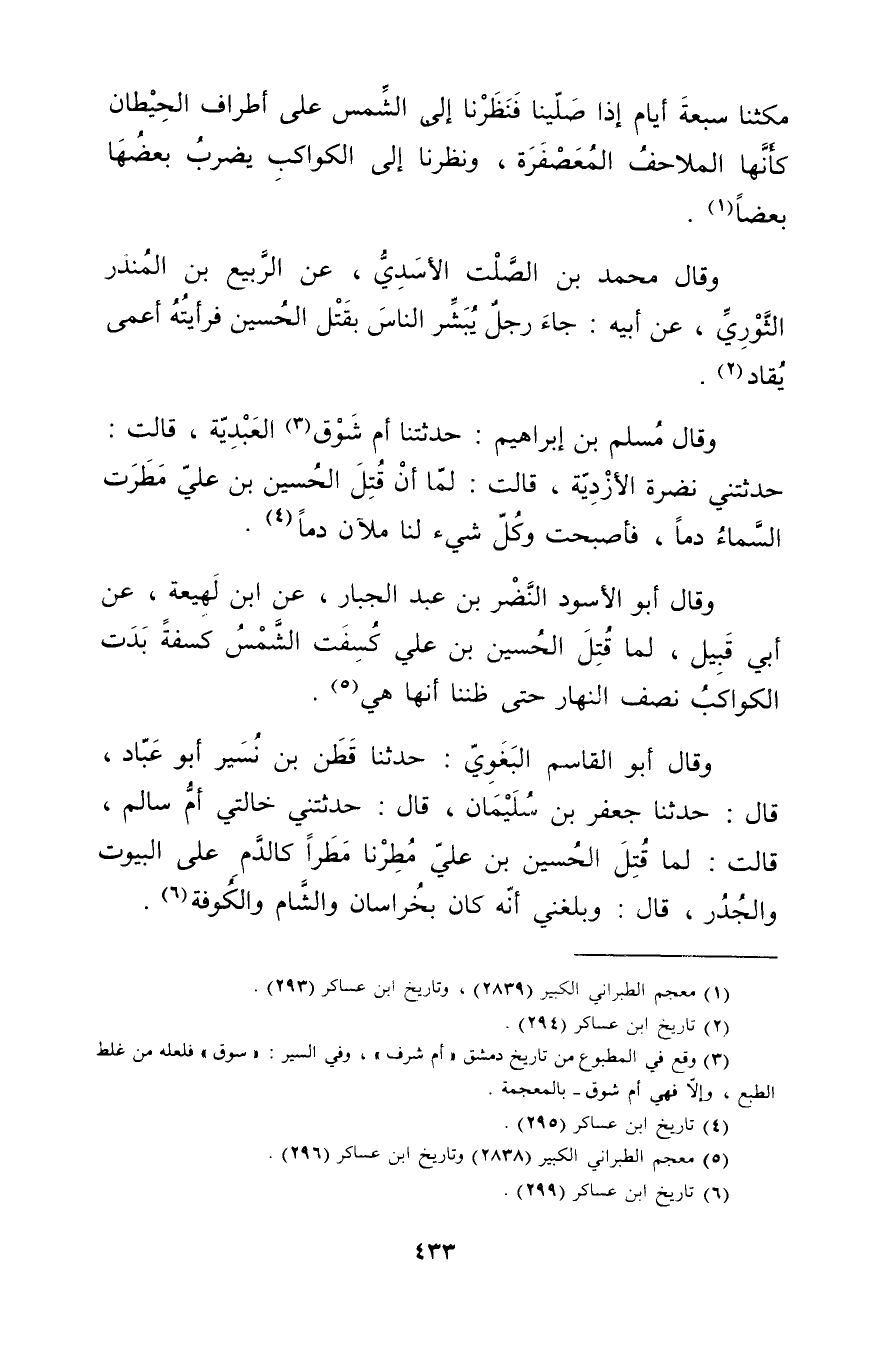 مكثنا سبعةَ أيام إذا صَلّينا فَنَظَرْنا إلى الشَّمس على أطراف الحِيْطان
كأَنَّها الملاحفُ المُعَصْفَرَة ، ونظرنا إلى الكواكبِ يضربُ بعضُهَا
بعضاً(١) .
وقال محمد بن الصَّلْت الأسَدِيُّ ، عن الرَّبيع بن المُنذر
الثَّوْرِيِّ ، عن أبيه : جاءَ رجلٌ يُبَشِّر الناسَ بقَتْل الحُسين فرأيتُهُ أعمى
يُقاد(٢) .
وقال مُسلم بن إبراهيم : حدثتنا أم شَوْق(٣) العَبْدِيّة ، قالت :
حدثتني نضرة الأزْدِيّة ، قالت : لمّا أنْ قُتِلَ الحُسين بن عليّ مَطَرَت
السَّماءُ دماً ، فأصبحت وكُلّ شيء لنا ملآن دماً(٤) .
وقال أبو الأسود النَّضْر بن عبد الجبار ، عن ابن لَهِيعة ، عن
أبي قَبِيل ، لما قُتِلَ الحُسين بن علي كُسِفَت الشَّمْسُ كسفةً بَدَت
الكواكبُ نصف النهار حتى ظننا أنها هي(٥) .
وقال أبو القاسم البَغَويّ : حدثنا قَطَن بن نُسَير أبو عَبّاد ،
قال : حدثنا جعفر بن سُلَيْمَان ، قال : حدثتني خالتي أمُّ سالم ،
قالت : لما قُتِلَ الحُسين بن عليّ مُطِرْنا مَطَراً كالدَّمِ على البيوت
والجُدُر ، قال : وبلغني أنّه كان بخُراسان والشَّام والكُوفة(٦) .
(١) معجم الطبراني الكبير (٢٨٣٩) ، وتاريخ ابن عساكر (٢٩٣) .
(٢) تاريخ ابن عساكر (٢٩٤) .
(٣) وقع في المطبوع من تاريخ دمشق « أم شرف » ، وفي السير : « سوق » فلعله من غلط
الطبع ، وإلاّ فهي أم شوق - بالمعجمة .
(٤) تاريخ ابن عساكر (٢٩٥) .
(٥) معجم الطبراني الكبير (٢٨٣٨) وتاريخ ابن عساكر (٢٩٦) .
(٦) تاريخ ابن عساكر (٢٩٩) .
٤٣٣